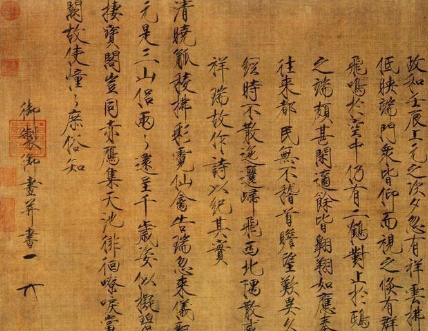 政和壬辰上元之次夕忽有祥雲拂
低映端門衆皆仰而視之倏有群
飛鳴於空中仍有二鶴對止於鴟
之端頗甚閑適餘皆翱翔如應奏
往來都民無不稽首瞻望歎異久
經時不散迤邐歸飛西北隅散
祥瑞故作詩以紀其實
清曉觚稜拂彩霓仙禽告瑞忽來儀
元是三山侶兩〻還呈千歲姿似擬碧
棲寶閣豈同赤雁集天池徘徊嘹唳當
闕故使憧〻庶俗知
御製御畫并書